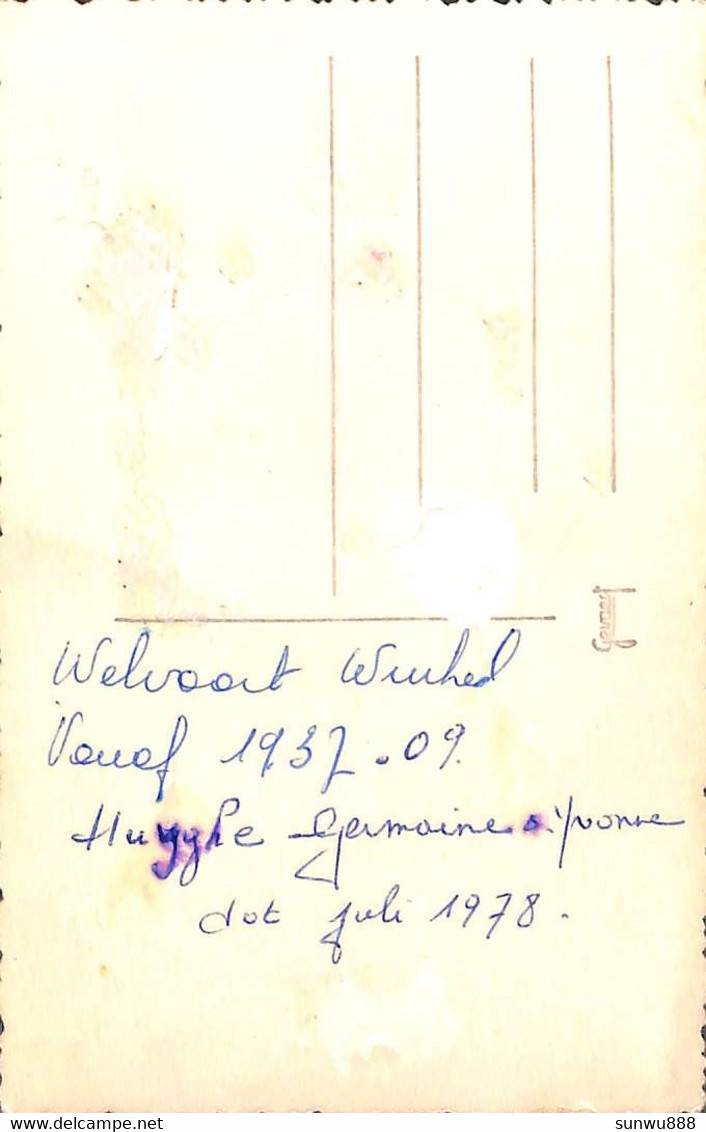 Gevaert
Welvaart Winkel
Vanaf 1937-09
Huyghe Germaine & Yvonne
tot juli 1978.
www.delcampe.net
sunwu888